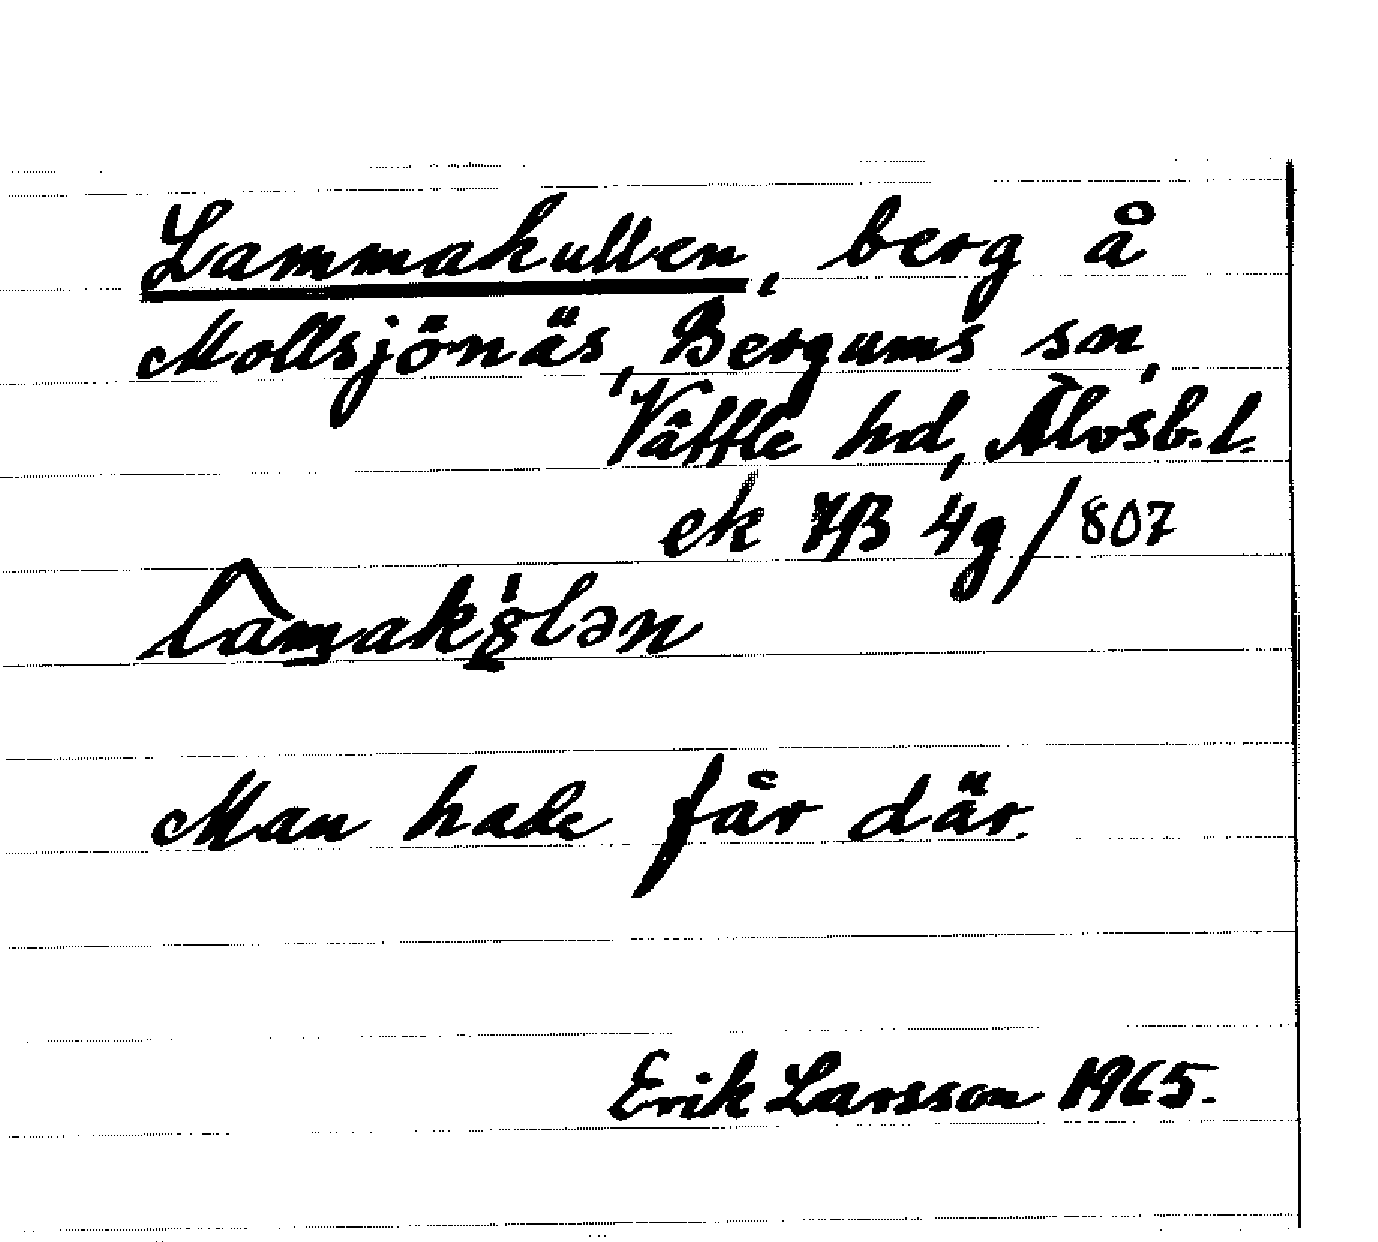 Lammakullen, berg å
Mollsjönäs, Bergums sn,
Vättle hd, Älvsb. l.
ek 7B 4g/807
Man hade får där.
Erik Larsson 1965.